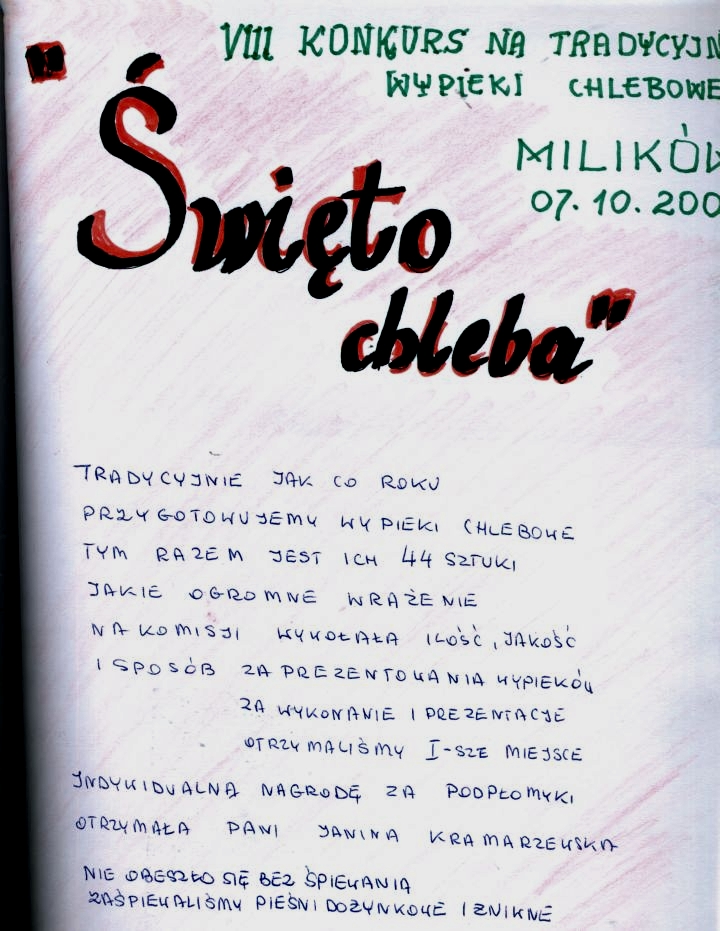 VIII KONKURS NA TRADYCYJN
WYPIEKI CHLEBOWE
MILIKÓW
07.10.200
"Święto
chleba"
TRADYCYJNIE JAK CO ROKU
PRZYGOTOWUJEMY WYPIEKI CHLEBOWE
TYM RAZEM JEST ICH 44 SZTUKI
JAKIE OGROMNE WRAŻENIE
NA KOMISJI WYWOŁAŁA ILOŚĆ, JAKOŚĆ
I SPOSÓB ZAPREZENTOWANIA WYPIEKÓW
ZA WYKONANIE I PREZENTACJE
OTRZYMALIŚMY I-SZE MIEJSCE
INDYWIDUALNĄ NAGRODĘ ZA PODPŁOMYKI
OTRZYMAŁA PANI JANINA KRAMARZEWSKA
NIE OBESZŁO SIĘ BEZ ŚPIEWANIA
ZAŚPIEWALIŚMY PIEŚNI DOŻYNKOWE I ZNIKNE